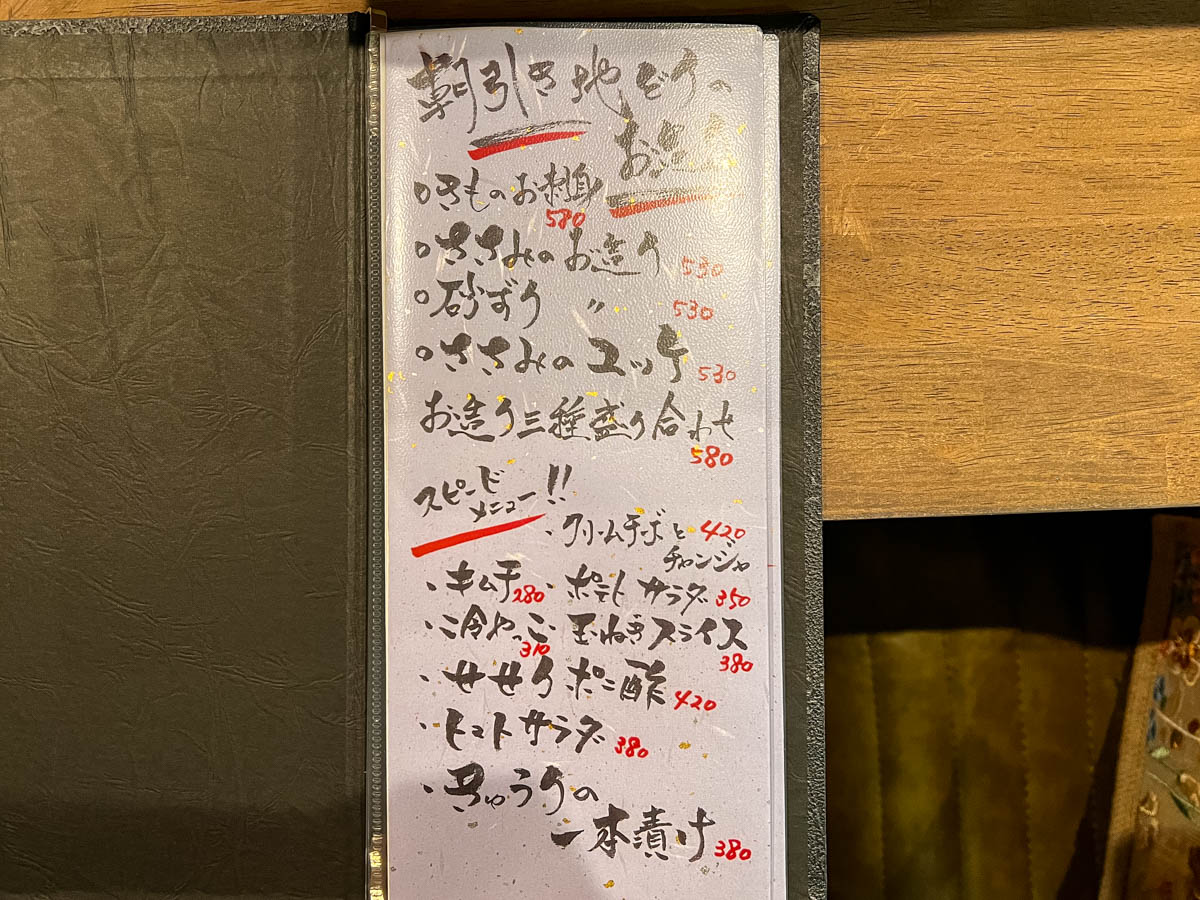 朝引き地どりの
お造り
○きものお刺身
580
○ささみのお造り 530
○砂ずり 〃 530
○ささみのユッケ 530
お造り三種盛り合わせ
580
スピード
メニュー!!
・クリームチーズと 420
チャンジャ
・キムチ 280
・ポテトサラダ 350
・冷やっこ 310
・玉ねぎスライス
380
・せせりポン酢 420
・トマトサラダ 380
・きゅうりの
一本漬け 380